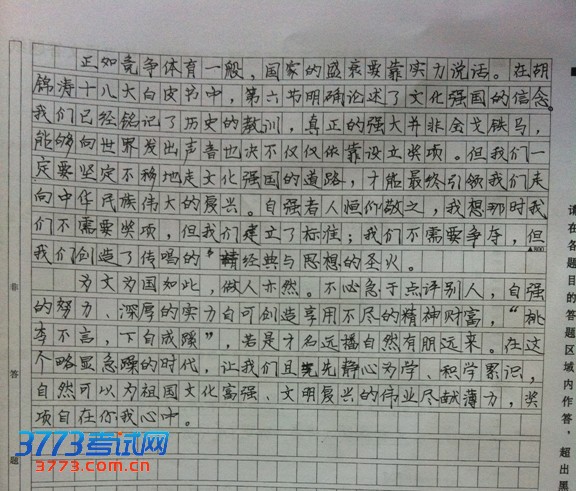 正如竞争体育一般，国家的盛衰要靠实力说话。在胡
锦涛十八大白皮书中，第六节明确论述了文化强国的信念。
我们已经铭记了历史的教训，真正的强大并非金戈铁马，
能够向世界发出声音也决不仅仅依靠设立奖项。但我们一
定要坚定不移地走文化强国的道路，才能最终引领我们走
向中华民族伟大的复兴。自强者人恒仰敬之，我想那时我
们不需要奖项，但我们建立了标准；我们不需要争夺，但
▲800
我们创造了传唱的“精经典与思想的圣火。
为文为国如此，做人亦然。不必急于点评别人，自强
的努力、深厚的实力自可创造享用不尽的精神财富，“桃
李不言，下自成蹊”，若是才名远播自然有朋远来。在这
个略显急躁的时代，让我们且先静心为学、积学累识，
自然可以为祖国文化富强、文明复兴的伟业尽献薄力，奖
项自在你我心中。
非
答
题
请在各题目的答题区域内作答，超出黑
3773考试网
3773.com.cn